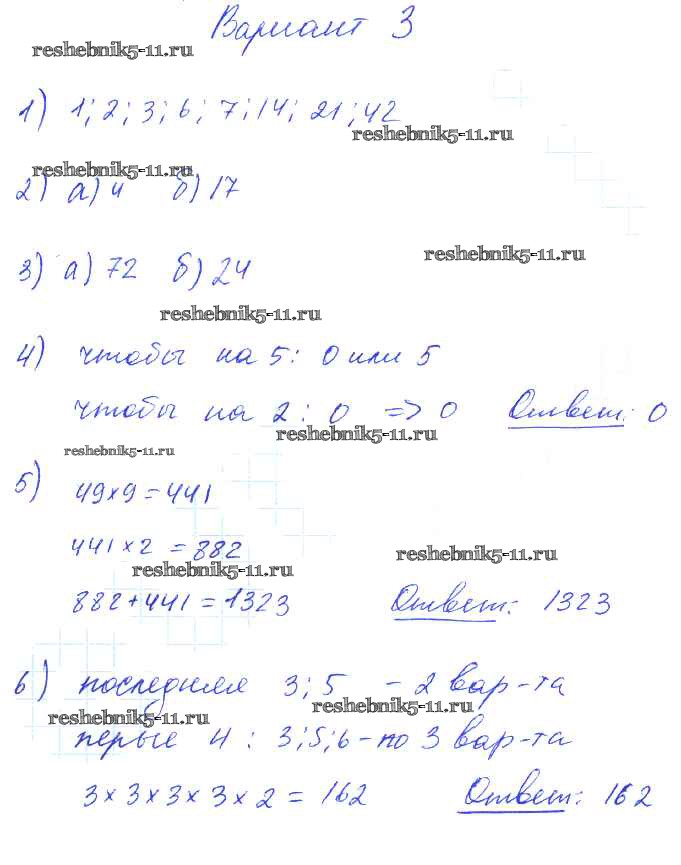 Вариант 3
reshebnik5-11.ru
1) 1; 2; 3; 6; 7; 14; 21; 42
reshebnik5-11.ru
reshebnik5-11.ru
2) а) 4 б) 17
reshebnik5-11.ru
3) а) 72 б) 24
reshebnik5-11.ru
4) чтобы на 5: 0 или 5
чтобы на 2: 0 => 0 Ответ: 0
reshebnik5-11.ru
reshebnik5-11.ru
5) 49×9=441
441×2=882
reshebnik5-11.ru
reshebnik5-11.ru
882+441=1323 Ответ: 1323
6) последняя 3; 5 - 2 вар-та
reshebnik5-11.ru
reshebnik5-11.ru
перые 4: 3; 5; 6 - по 3 вар-та
3×3×3×3×2=162 Ответ: 162